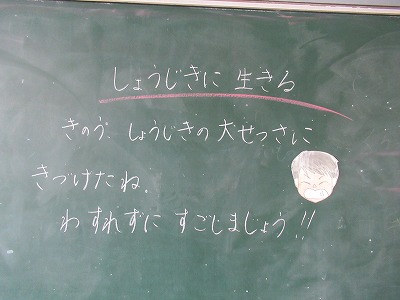 しょうじきに 生きる
きのう しょうじきの 大せつさに
きづけたね.
わすれずに すごしましょう!!